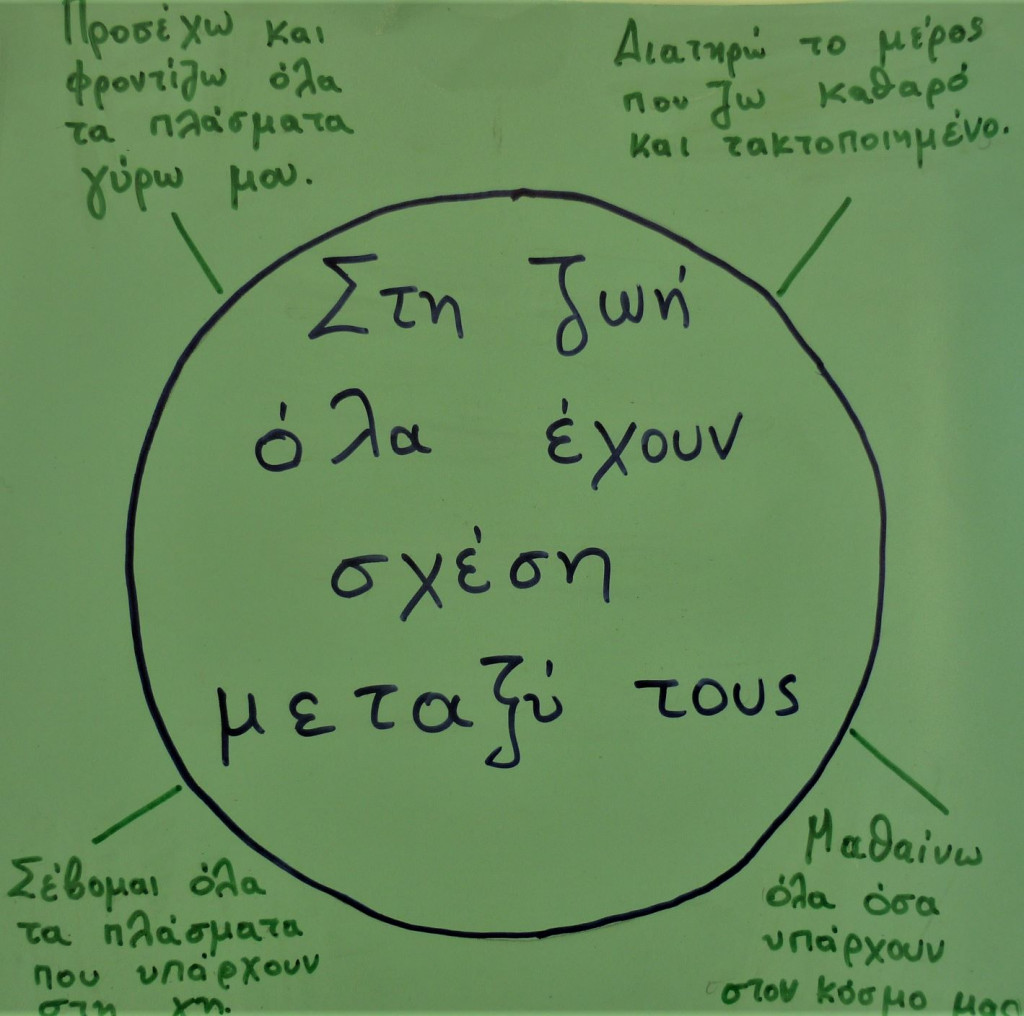 Προσέχω και
φροντίζω όλα
τα πλάσματα
γύρω μου.
Διατηρώ το μέρος
που ζω καθαρό
και τακτοποιημένο.
Στη ζωή
όλα έχουν
σχέση
μεταξύ τους
Σέβομαι όλα
τα πλάσματα
που υπάρχουν
στη γη.
Μαθαίνω
όλα όσα
υπάρχουν
στον κόσμο μας